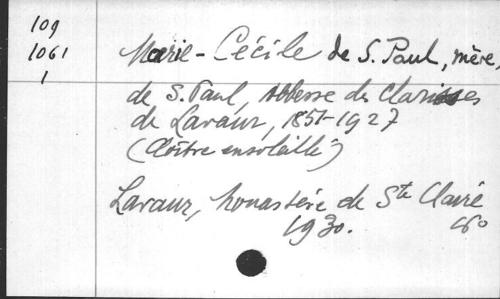 109
1061
1
Marie-Cécile de S. Paul, mère,
de S. Paul, Abbesse des Clarisses
de Lavaur, 1851-1927
(Cloître ensoleillé)
Lavaur, Monastère de Ste Claire
1930. 16°